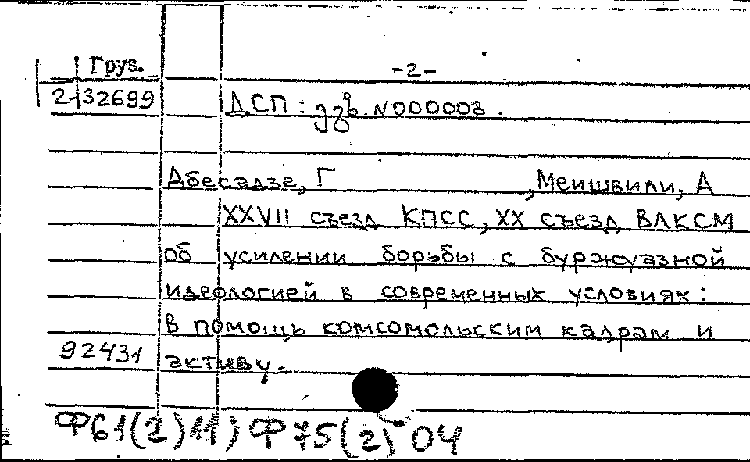 Груз. -2-
2-32699 ДСП: ეგზ. N000003.
Абесадзе, Г , Меишвили, А
XXVII съезд КПСС, XX съезд ВЛКСМ
об усилении борьбы с буржуазной
идеологией в современных условиях:
в помощь комсомольским кадрам и
92431 активу.
Ф61(2)11; Ф75(2)04